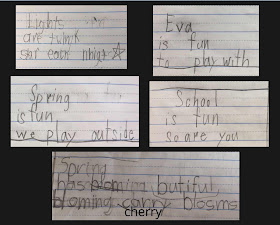 Lights
are
star each nhigt
Eva
is fun
to play with
Spring
is fun
we play outside
School
is fun
so are you
Spring
has bloming butiful,
bloming carry blosms
cherry